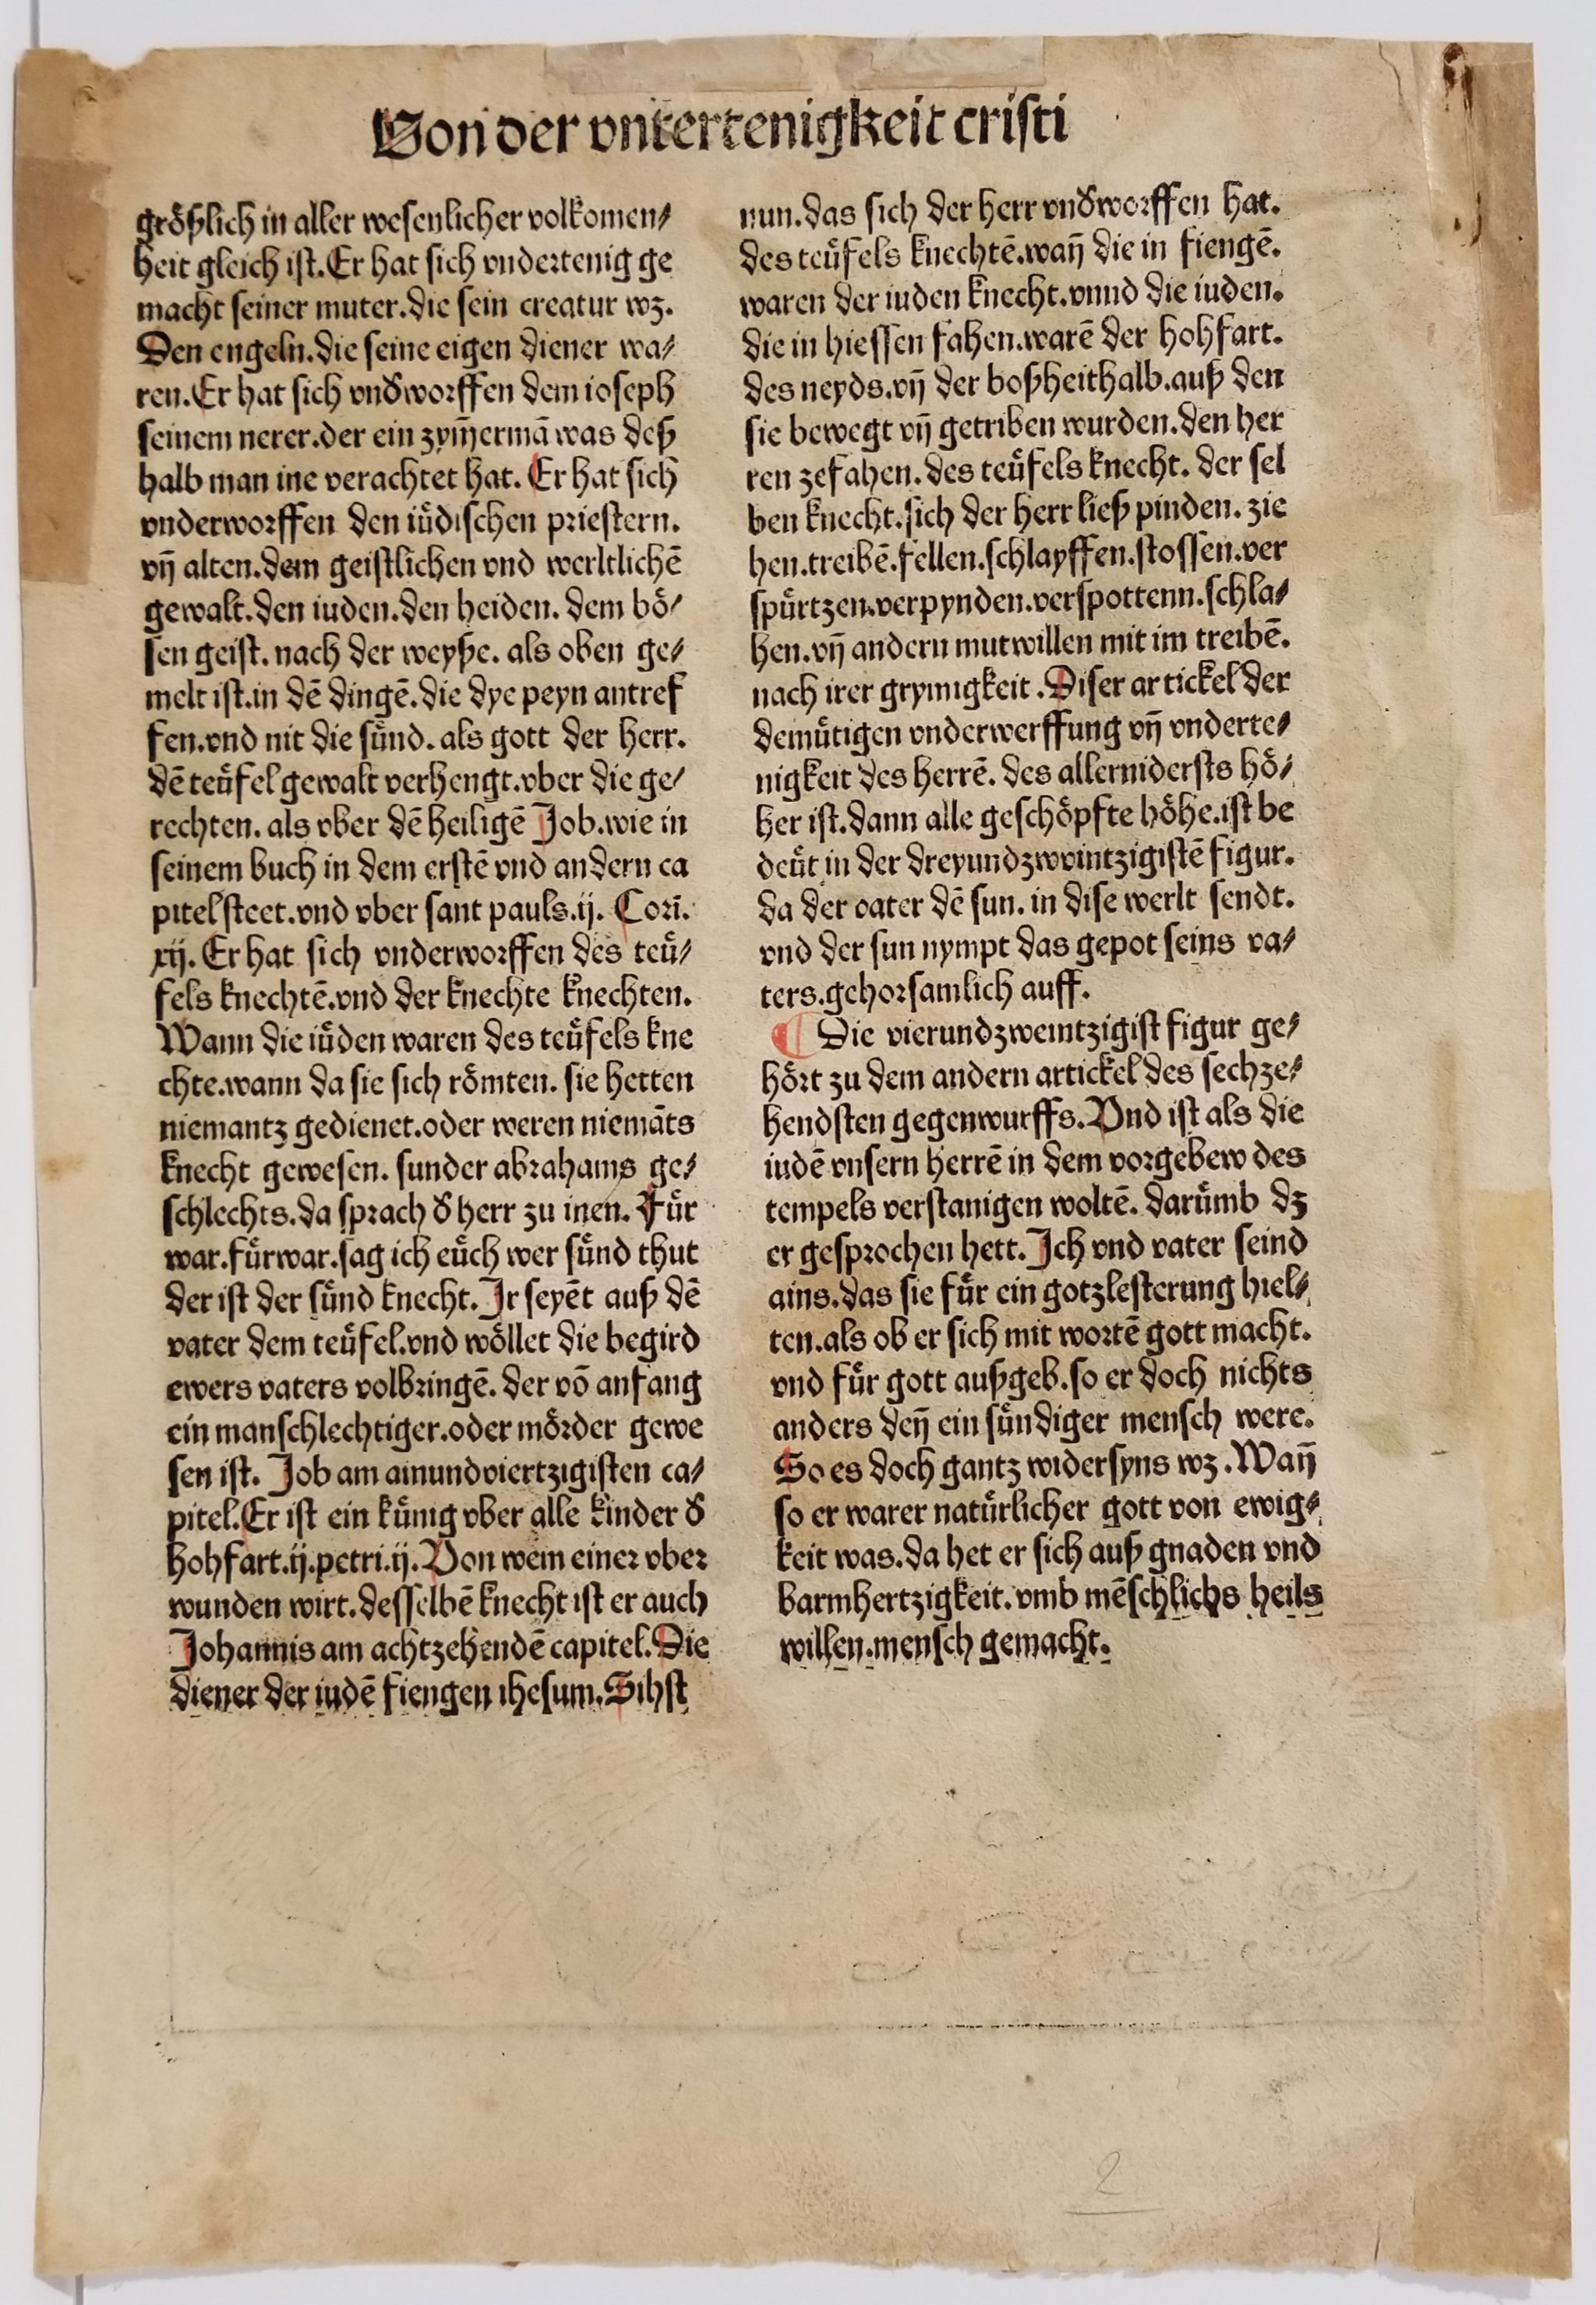 Von der vntertenigkeit cristi
größlich in aller wesenlicher volkomen⸗
heit gleich ist. Er hat sich vndertenig ge
macht seiner muter. die sein creatur wz.
Den engeln. die seine eigen diener wa⸗
ren. Er hat sich vnd̕worffen dem ioseph
seinem nerer. der ein zym̄ermā was deß
halb man ine verachtet hat. Er hat sich
vnderworffen den iüdischen priestern.
vn̄ alten. dem geistlichen vnd werltlichē
gewalt. den iuden. den heiden. dem bö⸗
sen geist. nach der weyße. als oben ge⸗
melt ist. in dē dingē. die dye peyn antref
fen. vnd nit die sünd. als gott der herr.
dē teüfel gewalt verhengt. vber die ge⸗
rechten. als vber dē heiligē Job. wie in
seinem buch in dem erstē vnd andern ca
pitel steet. vnd vber sant pauls. ij. Cori̅.
xij. Er hat sich vnderworffen des teü⸗
fels knechtē. vnd der knechte knechten.
Wann die iüden waren des teüfels kne
chte. wann da sie sich römten. sie hetten
niemantz gedienet. oder weren niemāts
knecht gewesen. sunder abrahams ge⸗
schlechts. da sprach d̕ herr zu inen. Für
war. fürwar. sag ich eüch wer sünd thut
der ist der sünd knecht. Jr seyēt auß dē
vater dem teüfel. vnd wöllet die begird
ewers vaters volbringē. der vō anfang
ein manschlechtiger. oder mörder gewe
sen ist. Job am ainundviertzigisten ca⸗
pitel. Er ist ein künig vber alle kinder d̕
hohfart. ij. petri. ij. Von wem einer vber
wunden wirt. desselbē knecht ist er auch
Johannis am achtzehendē capitel. Die
diener der iudē fiengen ihesum. Sihst
nun. das sich der herr vnd̕worffen hat.
des teüfels knechtē. wan̄ die in fiengē.
waren der iuden knecht. vnnd die iuden.
die in hiessen fahen. warē der hohfart.
des neyds. vn̄ der boßheit halb. auß den
sie bewegt vn̄ getriben wurden. den her
ren zefahen. des teüfels knecht. der sel
ben knecht. sich der herr ließ pinden. zie
hen. treibē. fellen. schlayffen. stossen. ver
spürtzen. verpynden. verspottenn. schla⸗
hen. vn̄ andern mutwillen mit im treibē.
nach irer grymigkeit. Diser artickel der
demütigen vnderwerffung vn̄ vnderte⸗
nigkeit des herrē. des allernidersts hö⸗
her ist. dann alle geschöpfte höhe. ist be
deüt in der dreyundzwvintzigistē figur.
da der vater dē sun. in dise werlt sendt.
vnd der sun nympt das gepot seins va⸗
ters. gehorsamlich auff.
¶ Die vierundzweintzigist figur ge⸗
hört zu dem andern artickel des sechze⸗
hendsten gegenwurffs. Vnd ist als die
iudē vnsern herrē in dem vorgebew des
tempels verstanigen woltē. darümb dz
er gesprochen hett. Jch vnd vater seind
ains. das sie für ein gotzlesterung hiel⸗
ten. als ob er sich mit wortē gott macht.
vnd für gott außgeb. so er doch nichts
anders den̄ ein sündiger mensch were.
So es doch gantz widersyns wz. Wan̄
so er warer natürlicher gott von ewig⸗
keit was. da het er sich auß gnaden vnd
barmhertzigkeit. vmb mēschlichs heils
willen. mensch gemacht.
2